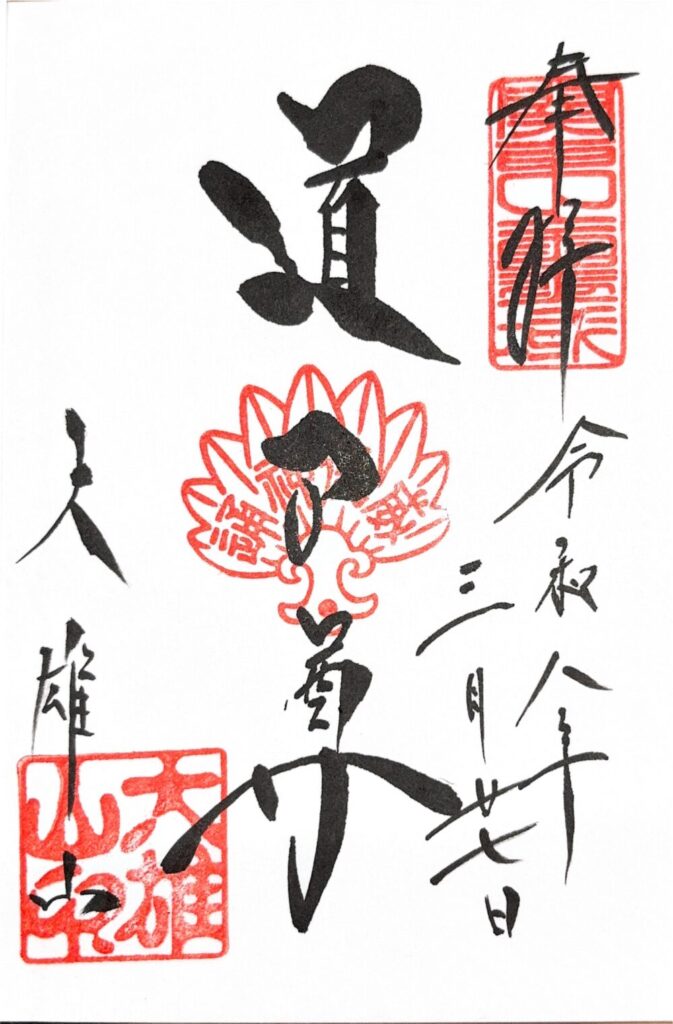 奉拝
令和八年
三月廿七日
道了尊
大雄山
大雄山印